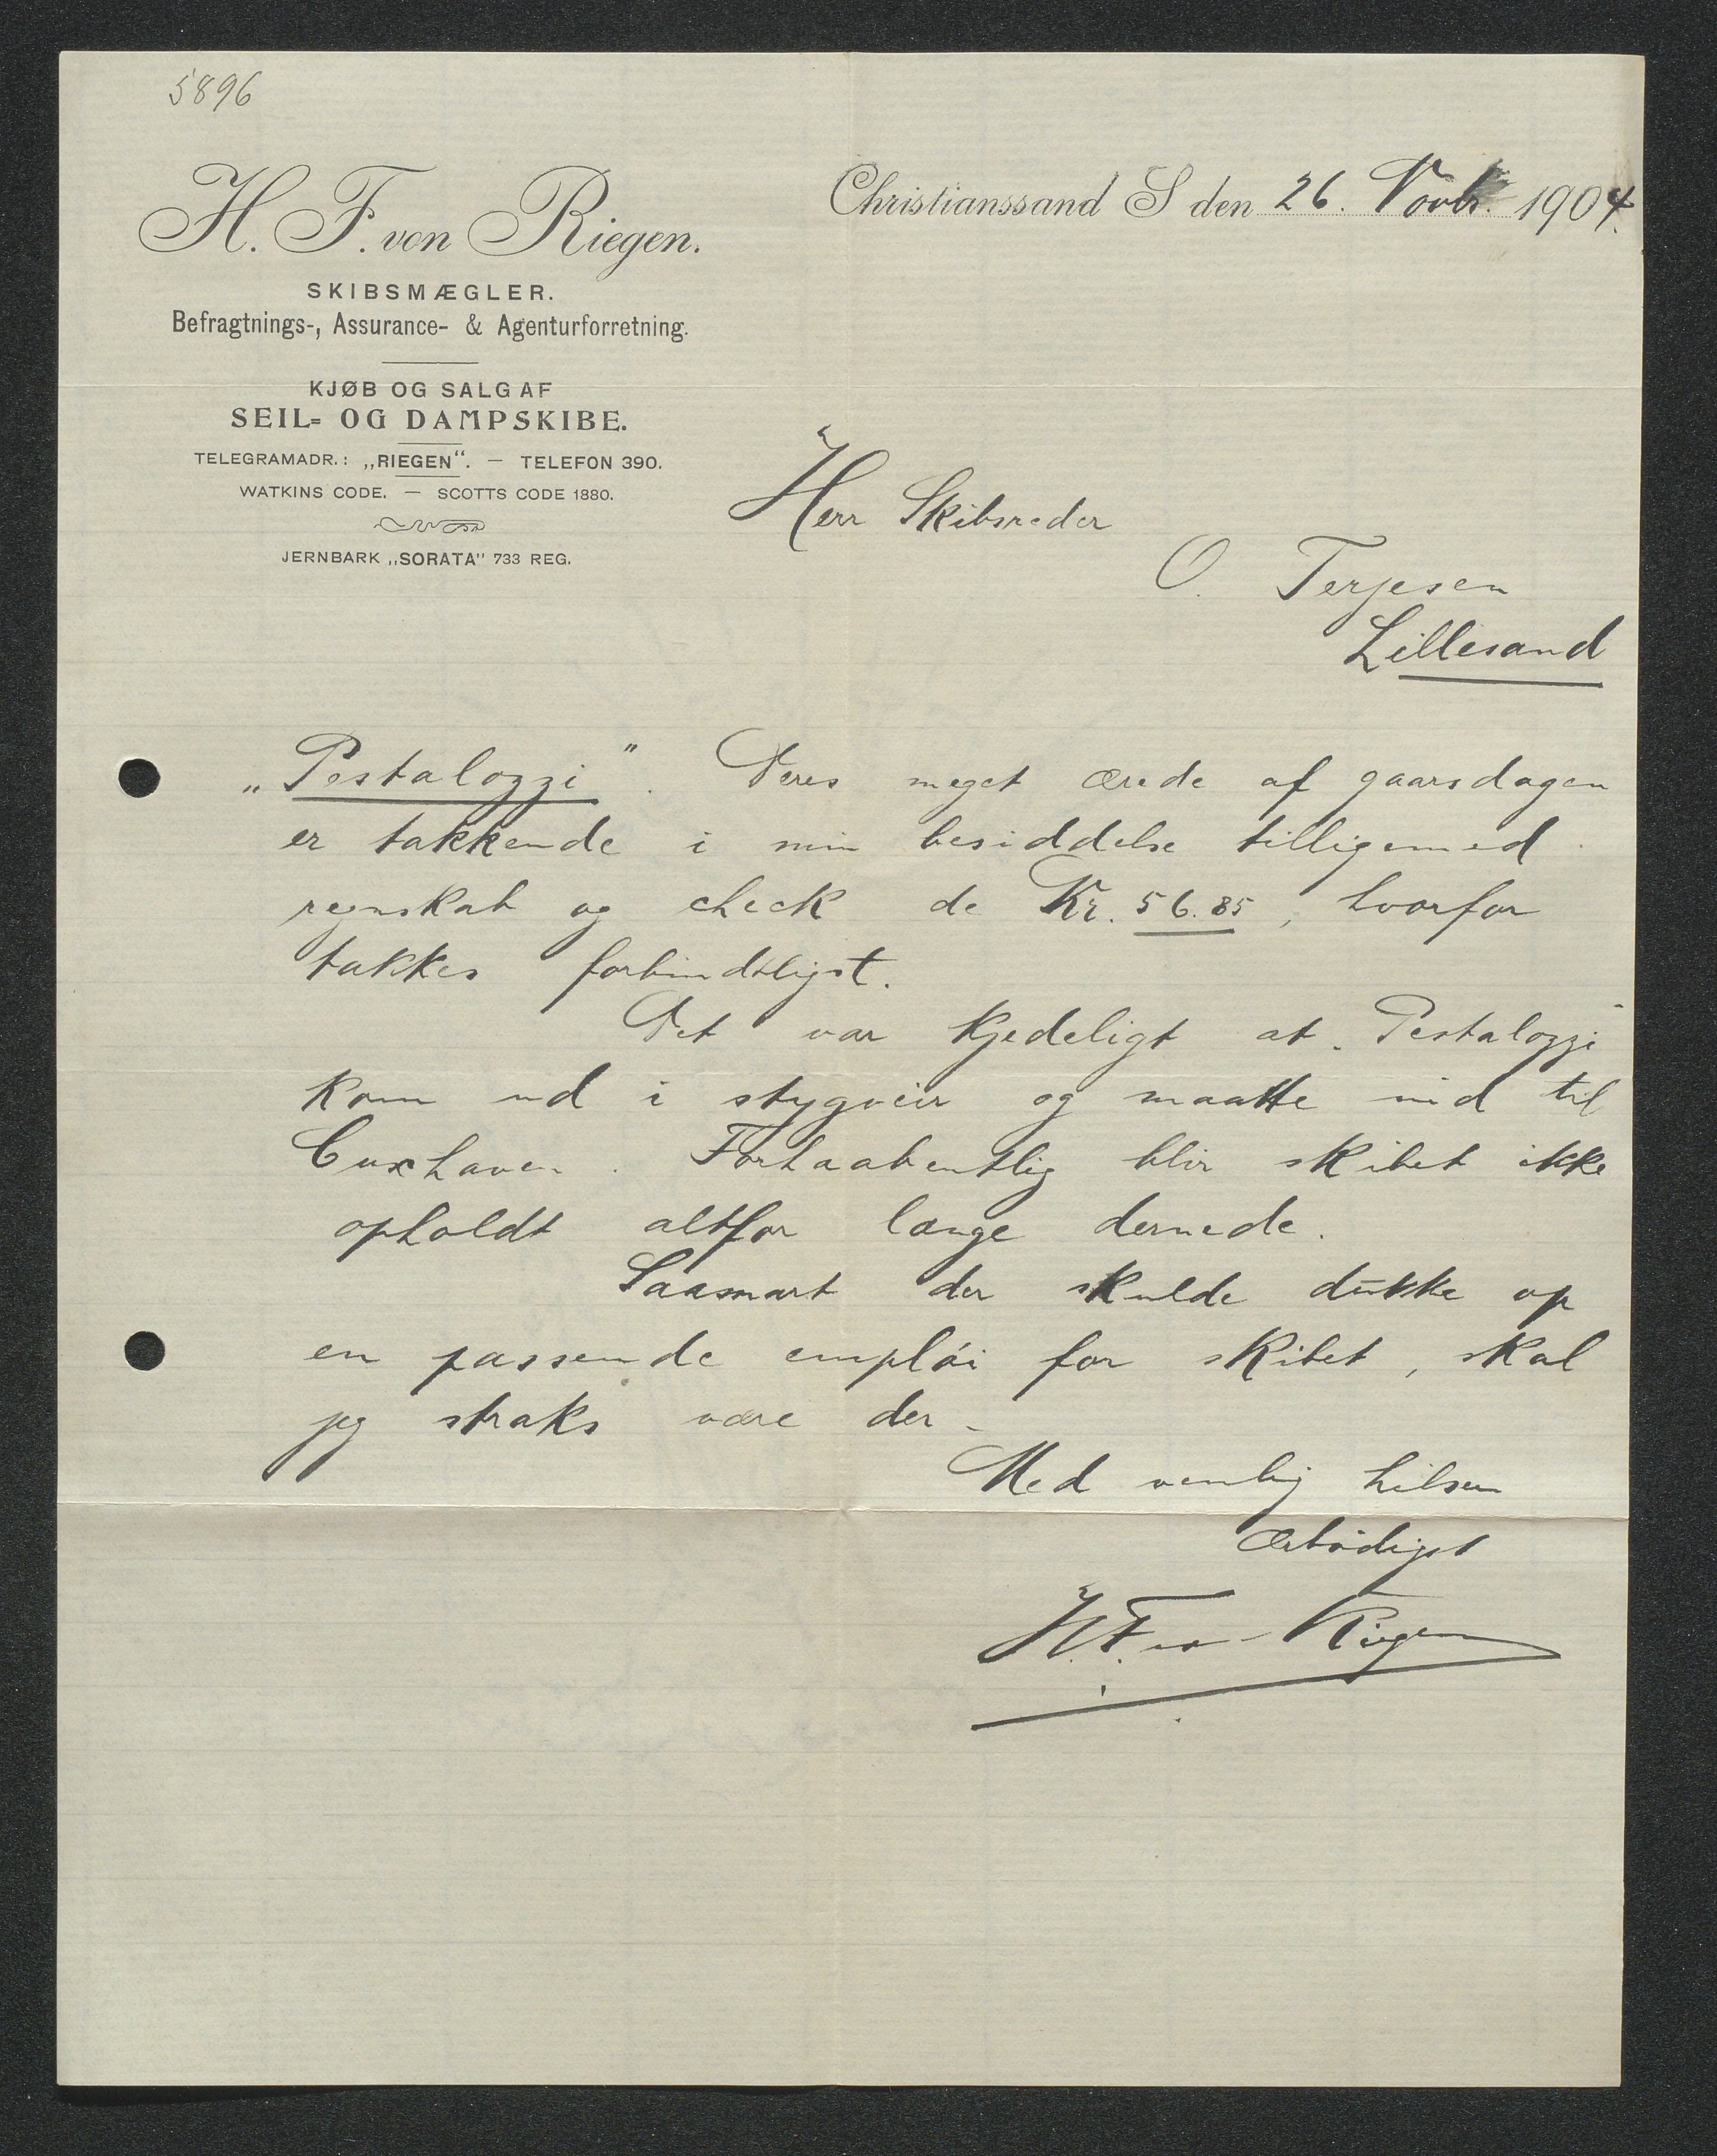 5896
H. F. von Riegen.
SKIBSMÆGLER.
Befragtnings-, Assurance- & Agenturforretning.
KJØB OG SALG AF
SEIL= OG DAMPSKIBE.
TELEGRAMADR.: „RIEGEN“. — TELEFON 390.
WATKINS CODE. — SCOTTS CODE 1880.
JERNBARK „SORATA“ 733 REG.
Christianssand S den 26. Novbr. 1904.
Herr Skibsreder
O. Terjesen
Lillesand
„Pestalozzi“. Deres meget ærede af gaarsdagen
er takkende i min besiddelse tilligemed
regnskab og check de Kr. 56.85, hvorfor
takkes forbindtligst.
Det var kjedeligt at „Pestalozzi“
kom ud i stygveir og maatte ind til
Cuxhaven. Forhaabentlig blir skibet ikke
opholdt altfor længe dernede.
Saasnart der skulde dukke op
en passende emploi for skibet, skal
jeg straks være der.
Med venlig hilsen
ærbødigst
H. F. von Riegen